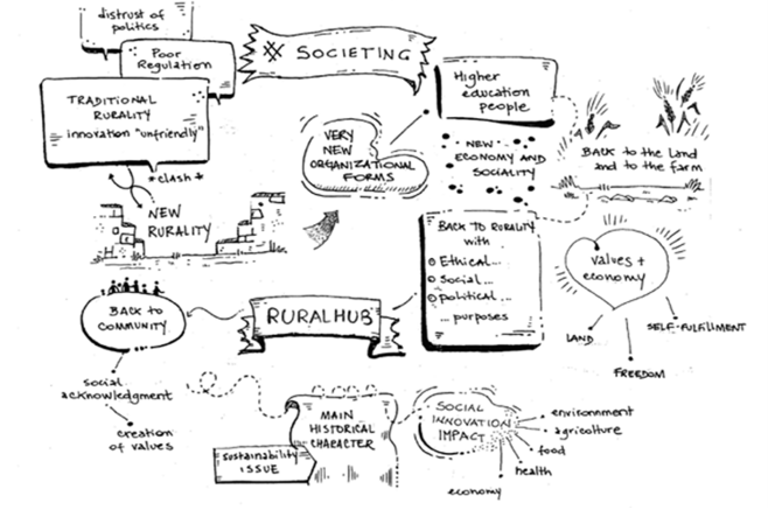 distrust of
politics
Poor
Regulation
TRADITIONAL
RURALITY
innovation "unfriendly"
*clash*
NEW
RURALITY
SOCIETING
VERY
NEW
ORGANIZATIONAL
FORMS
Higher
education
people
NEW
ECONOMY AND
SOCIALITY
BACK to the LAND
and to the farm
BACK TO RURALITY
with
Ethical...
Social...
political...
... purposes
values +
economy
LAND
FREEDOM
SELF-FULFILLMENT
RURALHUB
BACK to
COMMUNITY
social
acknowledgment
creation
of values
MAIN
HISTORICAL
CHARACTER
sustainability
ISSUE
SOCIAL
INNOVATION
IMPACT
environnment
agriculture
food
health
economy